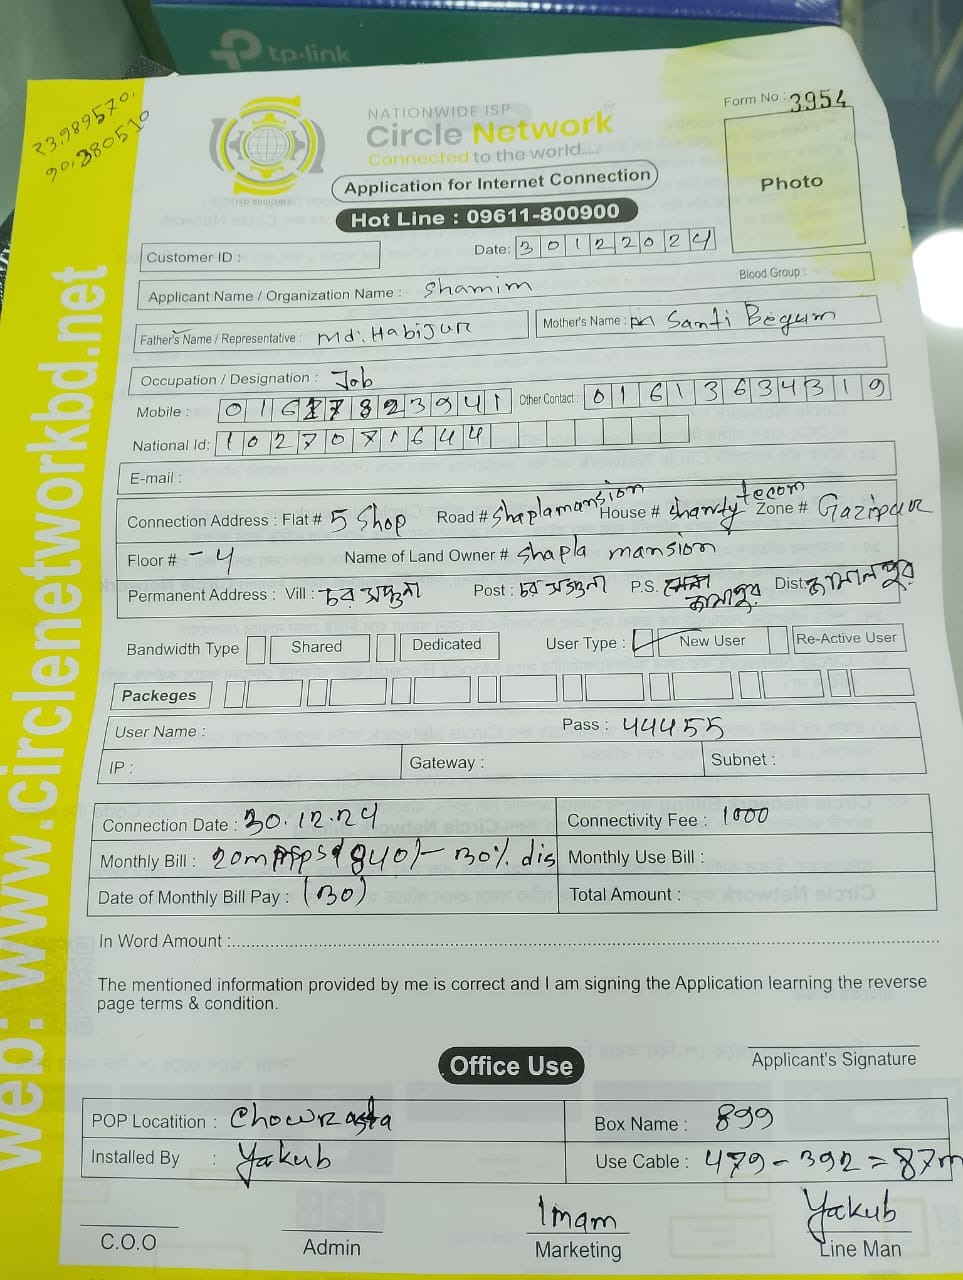 tp-link
23.989570,
90.380510
NATIONWIDE ISP
Circle Network
Connected to the world.....
ISO 9001:2015
Application for Internet Connection
Hot Line : 09611-800900
Form No : 3954
Photo
Customer ID :
Date: 30122024
Blood Group :
Applicant Name / Organization Name : Shamim
Father's Name / Representative : Md: Habijur
Mother's Name : Santi Begum
Occupation / Designation : Job
Mobile : 01677823941 Other Contact : 01613634319
National Id: 1027071644
E-mail :
Connection Address : Flat # 5 Shop Road # Shaplamansion House # Shanty tecom Zone # Gazipur
Floor # - 4 Name of Land Owner # Shapla mansion
Permanent Address : Vill : চর Post : চর P.S. Dist জামালপুর
Bandwidth Type Shared Dedicated User Type : New User Re-Active User
Packeges
User Name : Pass : 44455
IP : Gateway : Subnet :
Connection Date : 30.12.24 Connectivity Fee : 1000
Monthly Bill : 20 840/- 30% dis Monthly Use Bill :
Date of Monthly Bill Pay : (30) Total Amount :
In Word Amount :
The mentioned information provided by me is correct and I am signing the Application learning the reverse
page terms & condition.
Office Use
Applicant's Signature
POP Locatition : Chowrasta Box Name : 899
Installed By : Yakub Use Cable : 479 - 392 = 87m
C.O.O
Admin
Imam
Marketing
Yakub
Line Man
web: www.circlenetworkbd.net